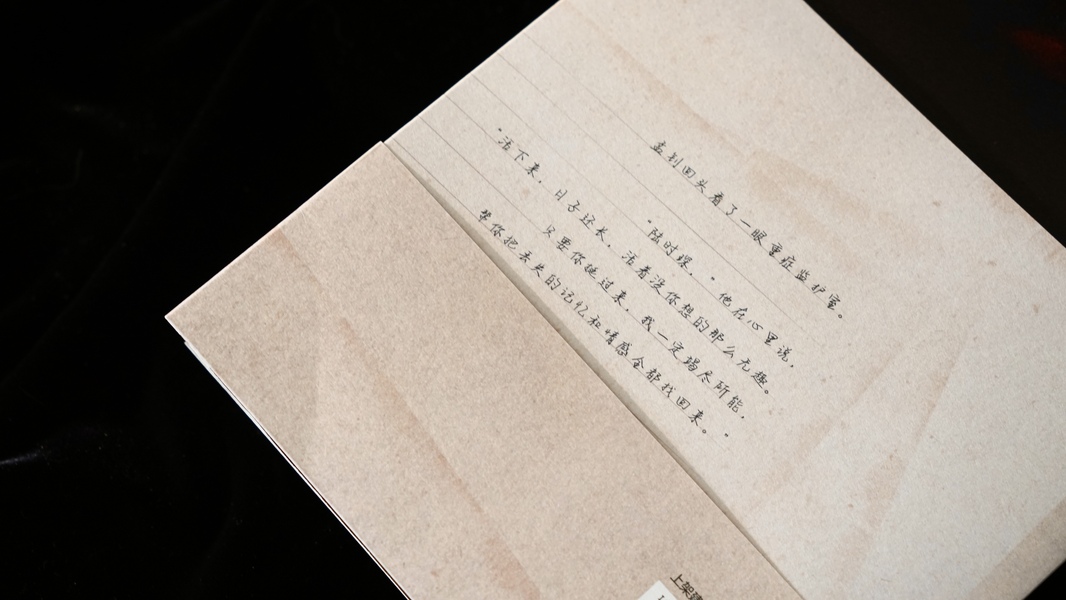 孟钊回头看了一眼重症监护室。
“陆时琛,”他在心里说,
“活下来,日子还长,活着没你想的那么无趣。
只要你挺过来,我一定竭尽所能,
帮你把丢失的记忆和情感全都找回来。”
上架